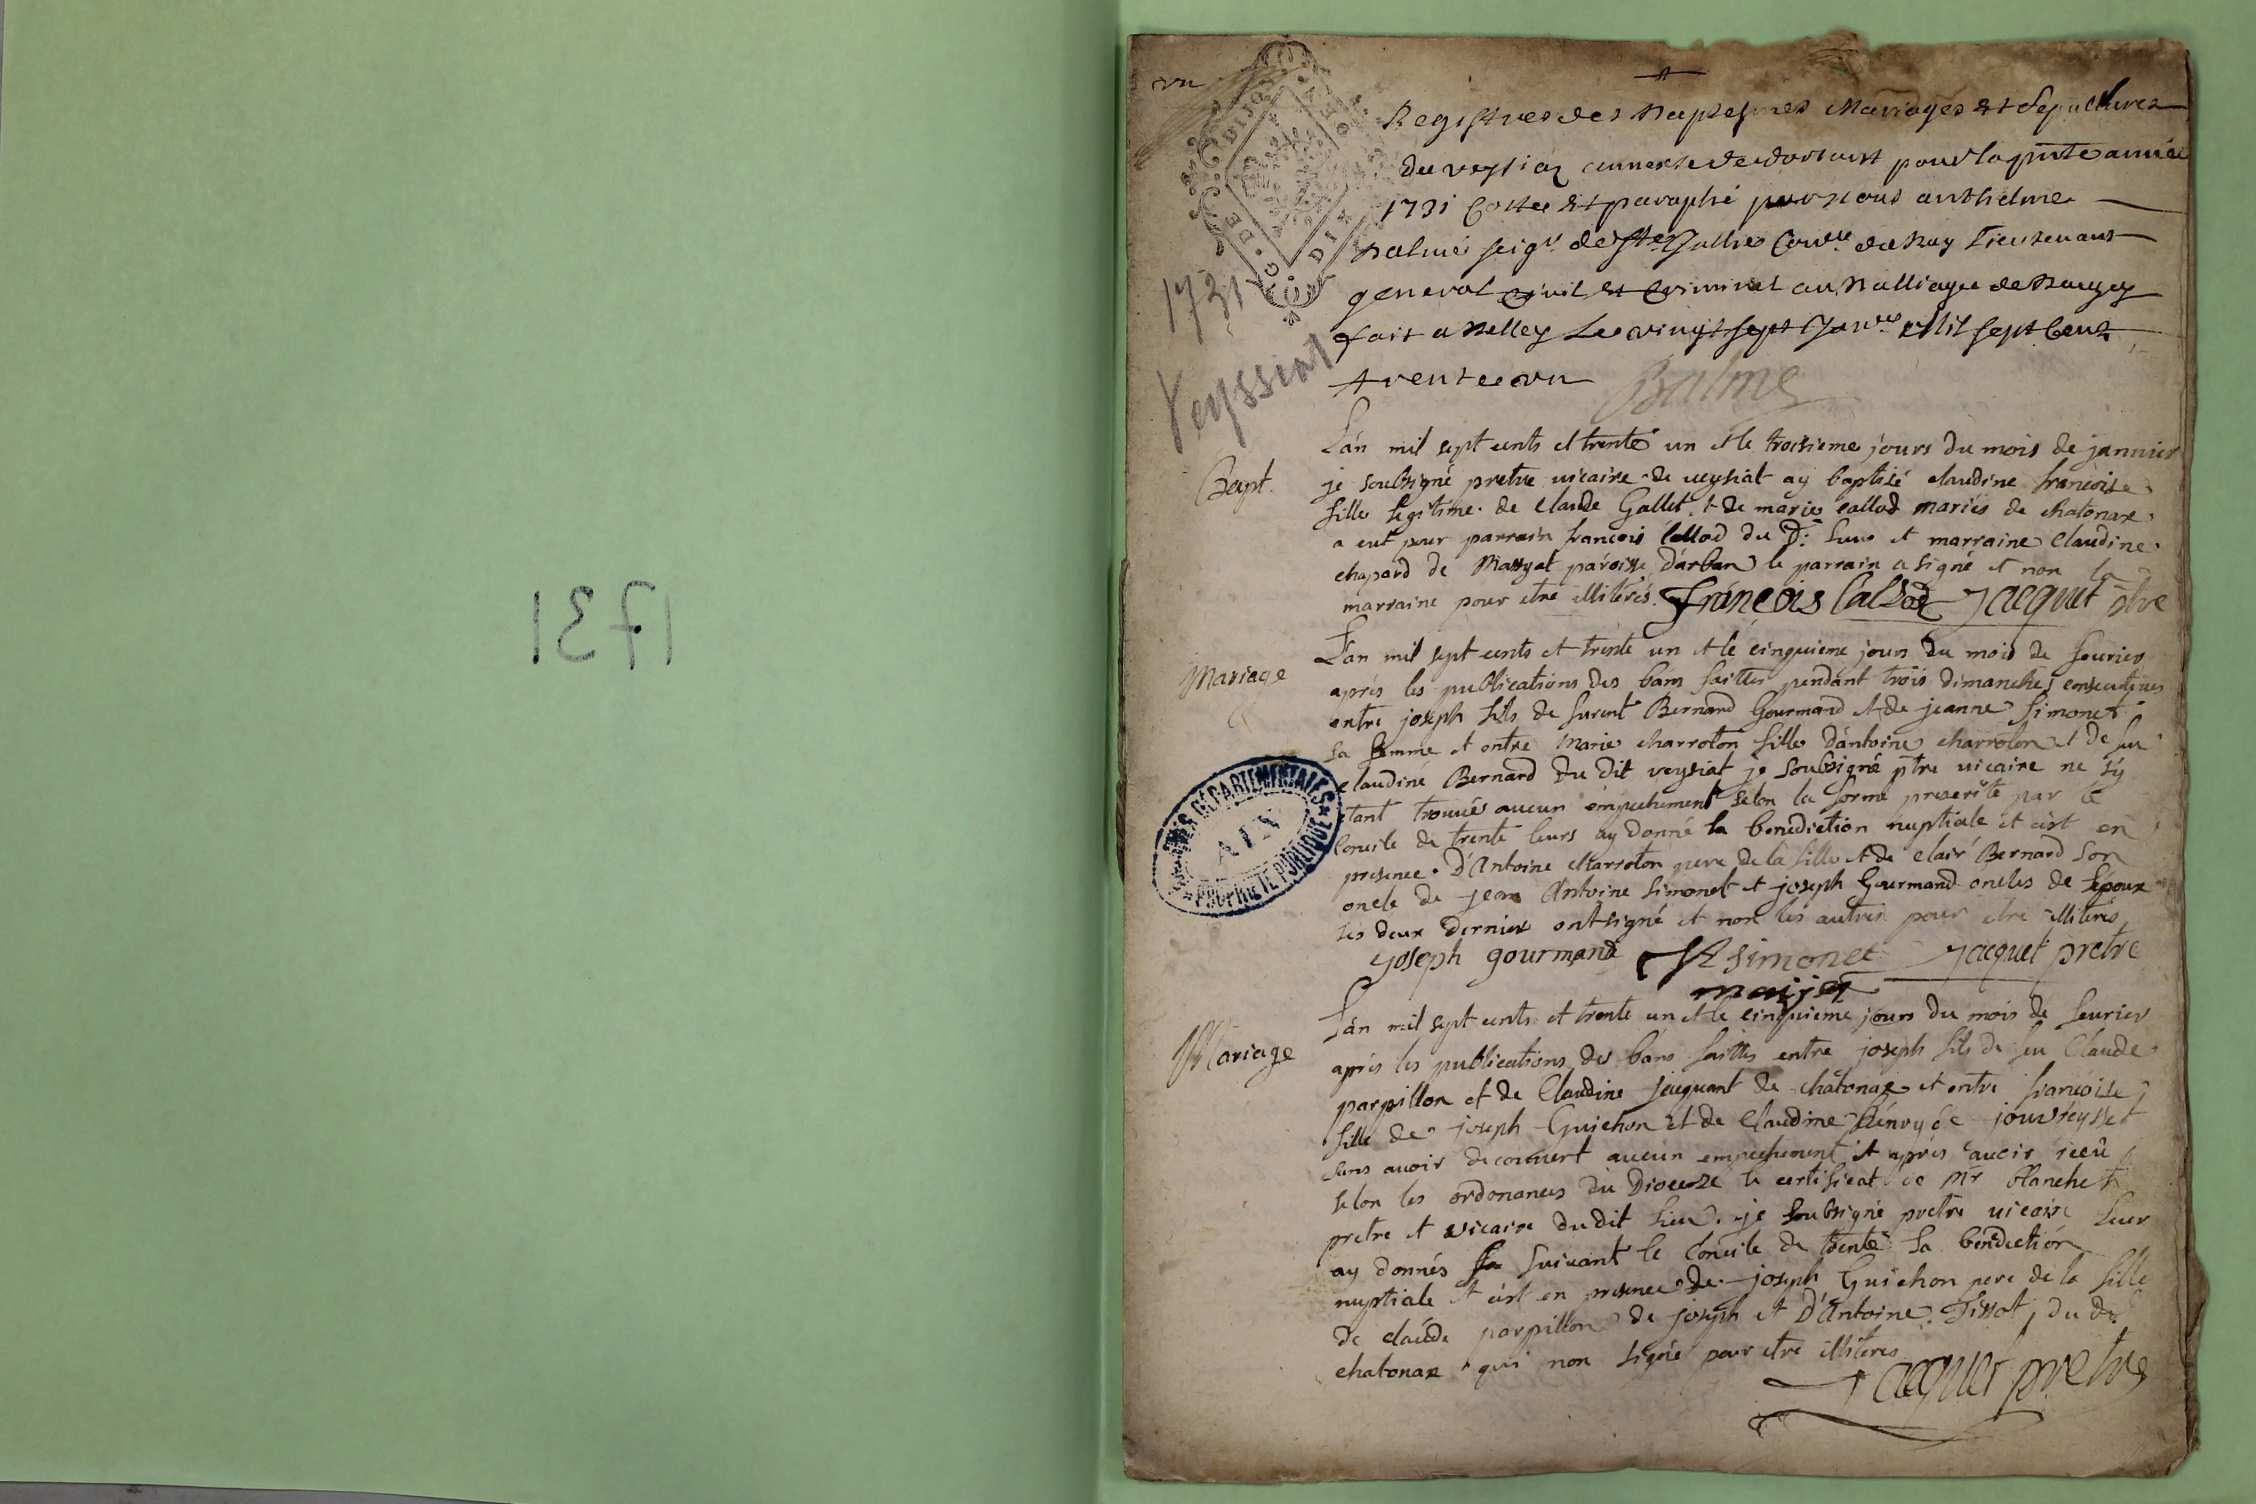 1731
vn
G. DE DIJON
1731
Veyssiat
Registres des Baptesmes Mariages et sepultures
du veysiaz annexe de dortant pour la pnte année
1731 Cottee et paraphé par nous anthelme
Balme seigr de Ste Jullie Conser du Roy Lieutenant
general Civil et Criminel au Balliage de Baugey
fait a Belley Le vingt sept Janvr Mil sept Cent
trente vn
Balme
Bapt.
L'an mil sept cents et trente un et le troisieme jours du mois de januier
je soubsigné pretre uicaire de ueysiat ay baptisé claudine francoise
fille legitime de claude Gallet et de marie callod mariés de chatonax
a eut pour parrain francois Callod du D: lieu et marraine Claudine
chapard de Massyat paroisse d'arban le parrain a signé et non la
marraine pour etre illiterés. françois Callod Jacquet ptre
Mariage
L'an mil sept cents et trente un et le cinquieme jours du mois de feurier
aprés les publications des bans faittes pendant trois dimanches consecutiues
entre joseph fils de Bernard Gourmand et de jeanne Simonet
sa femme et entre Marie charroton fille d'antoine charroton et de feu
claudine Bernard du dit veysiat je soubsigné ptre uicaire ne s'y
etant trouués aucun empechement selon la forme prescrite par le
Concile de trente leurs ay donné la benediction nuptiale et c'est en
presence D'Antoine charroton pere de la fille et de clair Bernard son
oncle de jean Antoine Simonet et joseph Gourmand oncles de l'epoux
les deux dernier ont signé et non les autres pour etre illiterés
joseph gourmand Simonet Jacquet pretre
Mariage
L'an mil sept cents et trente un et le cinquieme jours du mois de feurier
aprés les publications des bans faittes entre joseph fils de feu Claude
parpillon et de Claudine Jacquant de chatonax et entre francoise
fille de joseph Guichon et de Claudine de jouvreysset
sans auoir decouuert aucun empechement et aprés auoir receu
selon les ordonances du Diocese le certificat de Mr blanchet
pretre et vicaire du dit lieu. je soubsigné pretre uicaire leur
ay donnés suiuant le Concile de trente la benediction
nuptiale et c'est en presence de joseph Guichon pere de la fille
de claude parpillon de joseph et D'Antoine Tissot, du d.
chatonax qui non signé pour etre illiteres
Jacquet pretre
ARCHIVES DÉPARTEMENTALES
AIN
PROPRIÉTÉ PUBLIQUE